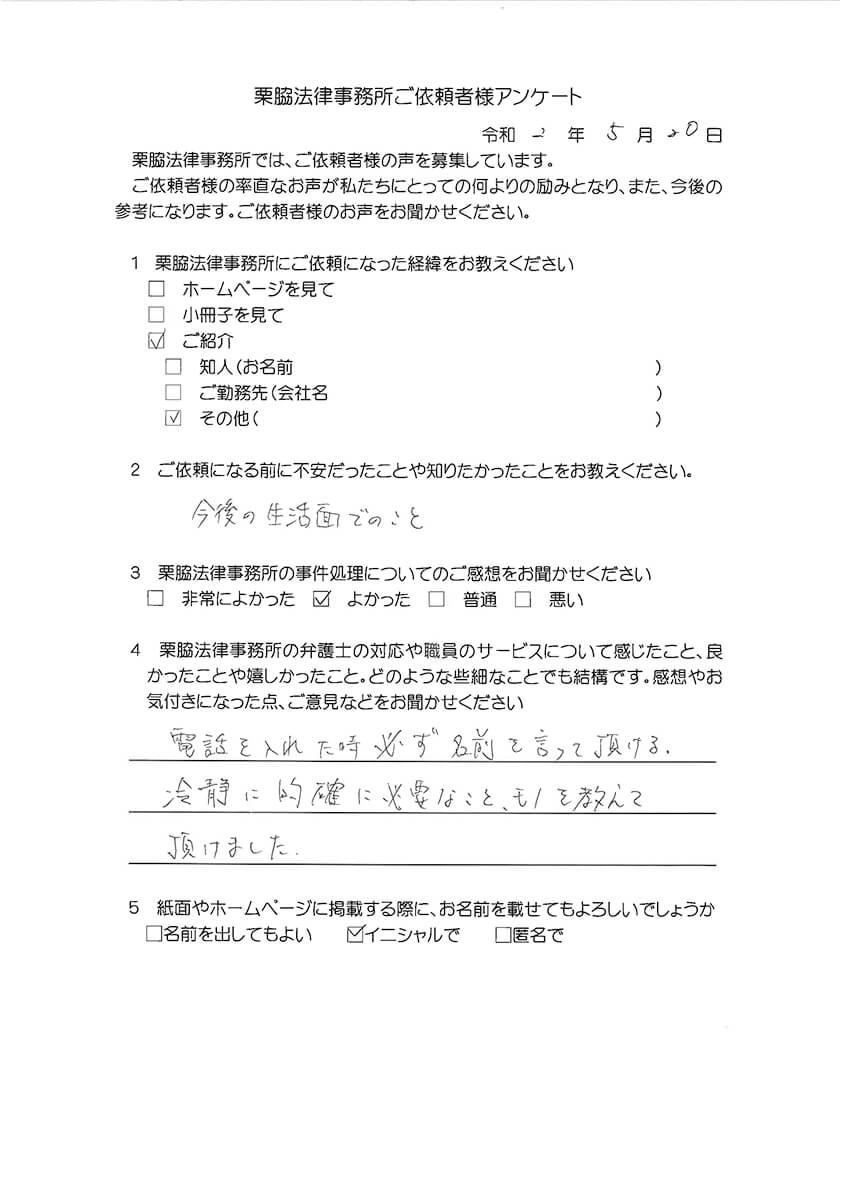 栗脇法律事務所ご依頼者様アンケート
令和 2 年 5 月 20 日
栗脇法律事務所では、ご依頼者様の声を募集しています。
ご依頼者様の率直なお声が私たちにとっての何よりの励みとなり、また、今後の
参考になります。ご依頼者様のお声をお聞かせください。
1 栗脇法律事務所にご依頼になった経緯をお教えください
□ ホームページを見て
□ 小冊子を見て
☑ ご紹介
□ 知人(お名前 )
□ ご勤務先(会社名 )
☑ その他( )
2 ご依頼になる前に不安だったことや知りたかったことをお教えください。
今後の生活面でのこと
3 栗脇法律事務所の事件処理についてのご感想をお聞かせください
□ 非常によかった ☑ よかった □ 普通 □ 悪い
4 栗脇法律事務所の弁護士の対応や職員のサービスについて感じたこと、良
かったことや嬉しかったこと。どのような些細なことでも結構です。感想やお
気付きになった点、ご意見などをお聞かせください
電話を入れた時必ず名前を言って頂ける.
冷静に的確に必要なこと、モノを教えて
頂けました.
5 紙面やホームページに掲載する際に、お名前を載せてもよろしいでしょうか
□名前を出してもよい ☑イニシャルで □匿名で